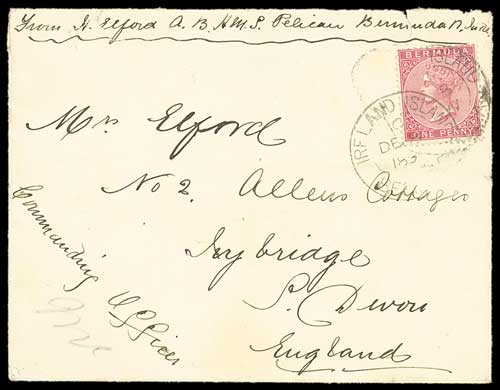 From H. Elford A. B. H.M.S. Pelican Bermuda N.
BERMUDA
ONE PENNY
IRELAND ISLAND
DE
Mrs Elford
No 2. Allens Cottages
Ivybridge
S. Devon
England
Commanding Officer